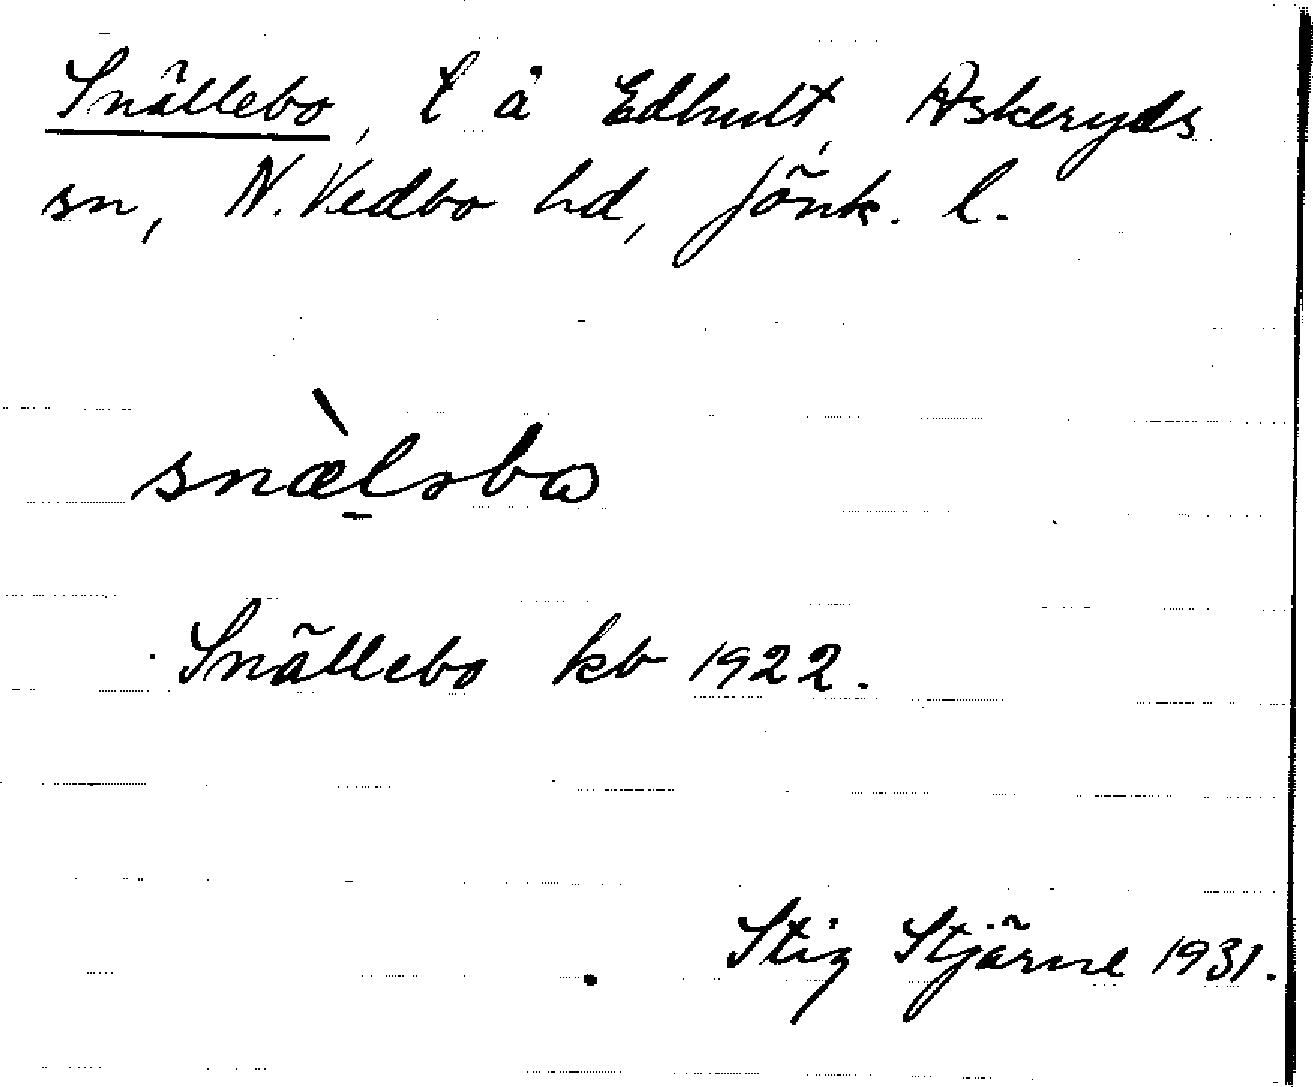 Snällebo, l å Edhult, Askeryds
sn, N. Vedbo hd, Jönk. l.
Snällebo kb 1922.
Stig Stjärne 1931.